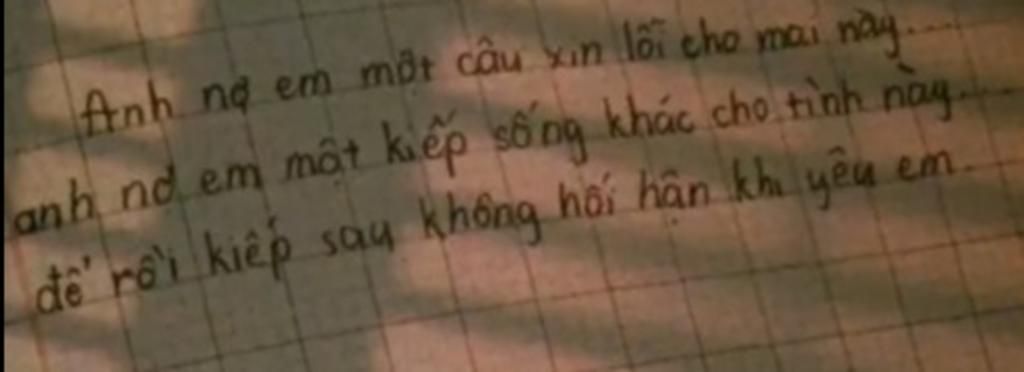 Anh nợ em một câu xin lỗi cho mai này....
anh nợ em một kiếp sống khác cho tình này....
để rồi kiếp sau không hối hận khi yêu em.